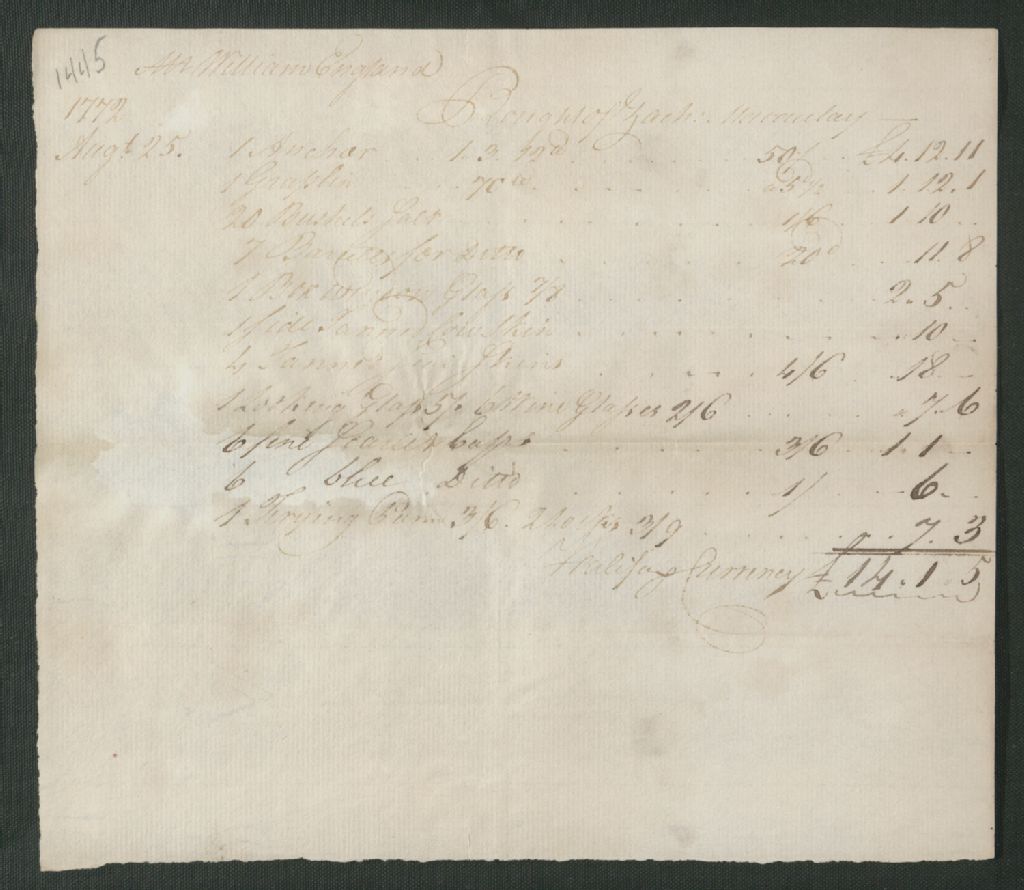 1445
Mr William England
1772 Bought of Zach: Macaulay
Augt 25. 1 Anchor 1. 3. 50/ £4. 12. 11
1 Graplin 70 lb a 5 1/2 1. 12. 1
20 Bushels Salt 1/6 1. 10
7 for Ditto 20d 11. 8
1 Box Glass 2. 5
1 Side Tannd Cow Skin 10
4 Tannd Skins 4/6 18
1 Looking Glass 5/. 6 Wine Glasses 2/6 " 7. 6
6 fine Caps 3/6 1. 1
6 blue Ditto 1/ 6.
1 Frying Pann 3/6. 2 3/9 7. 3
Halifax Currency £ 14. 1. 5